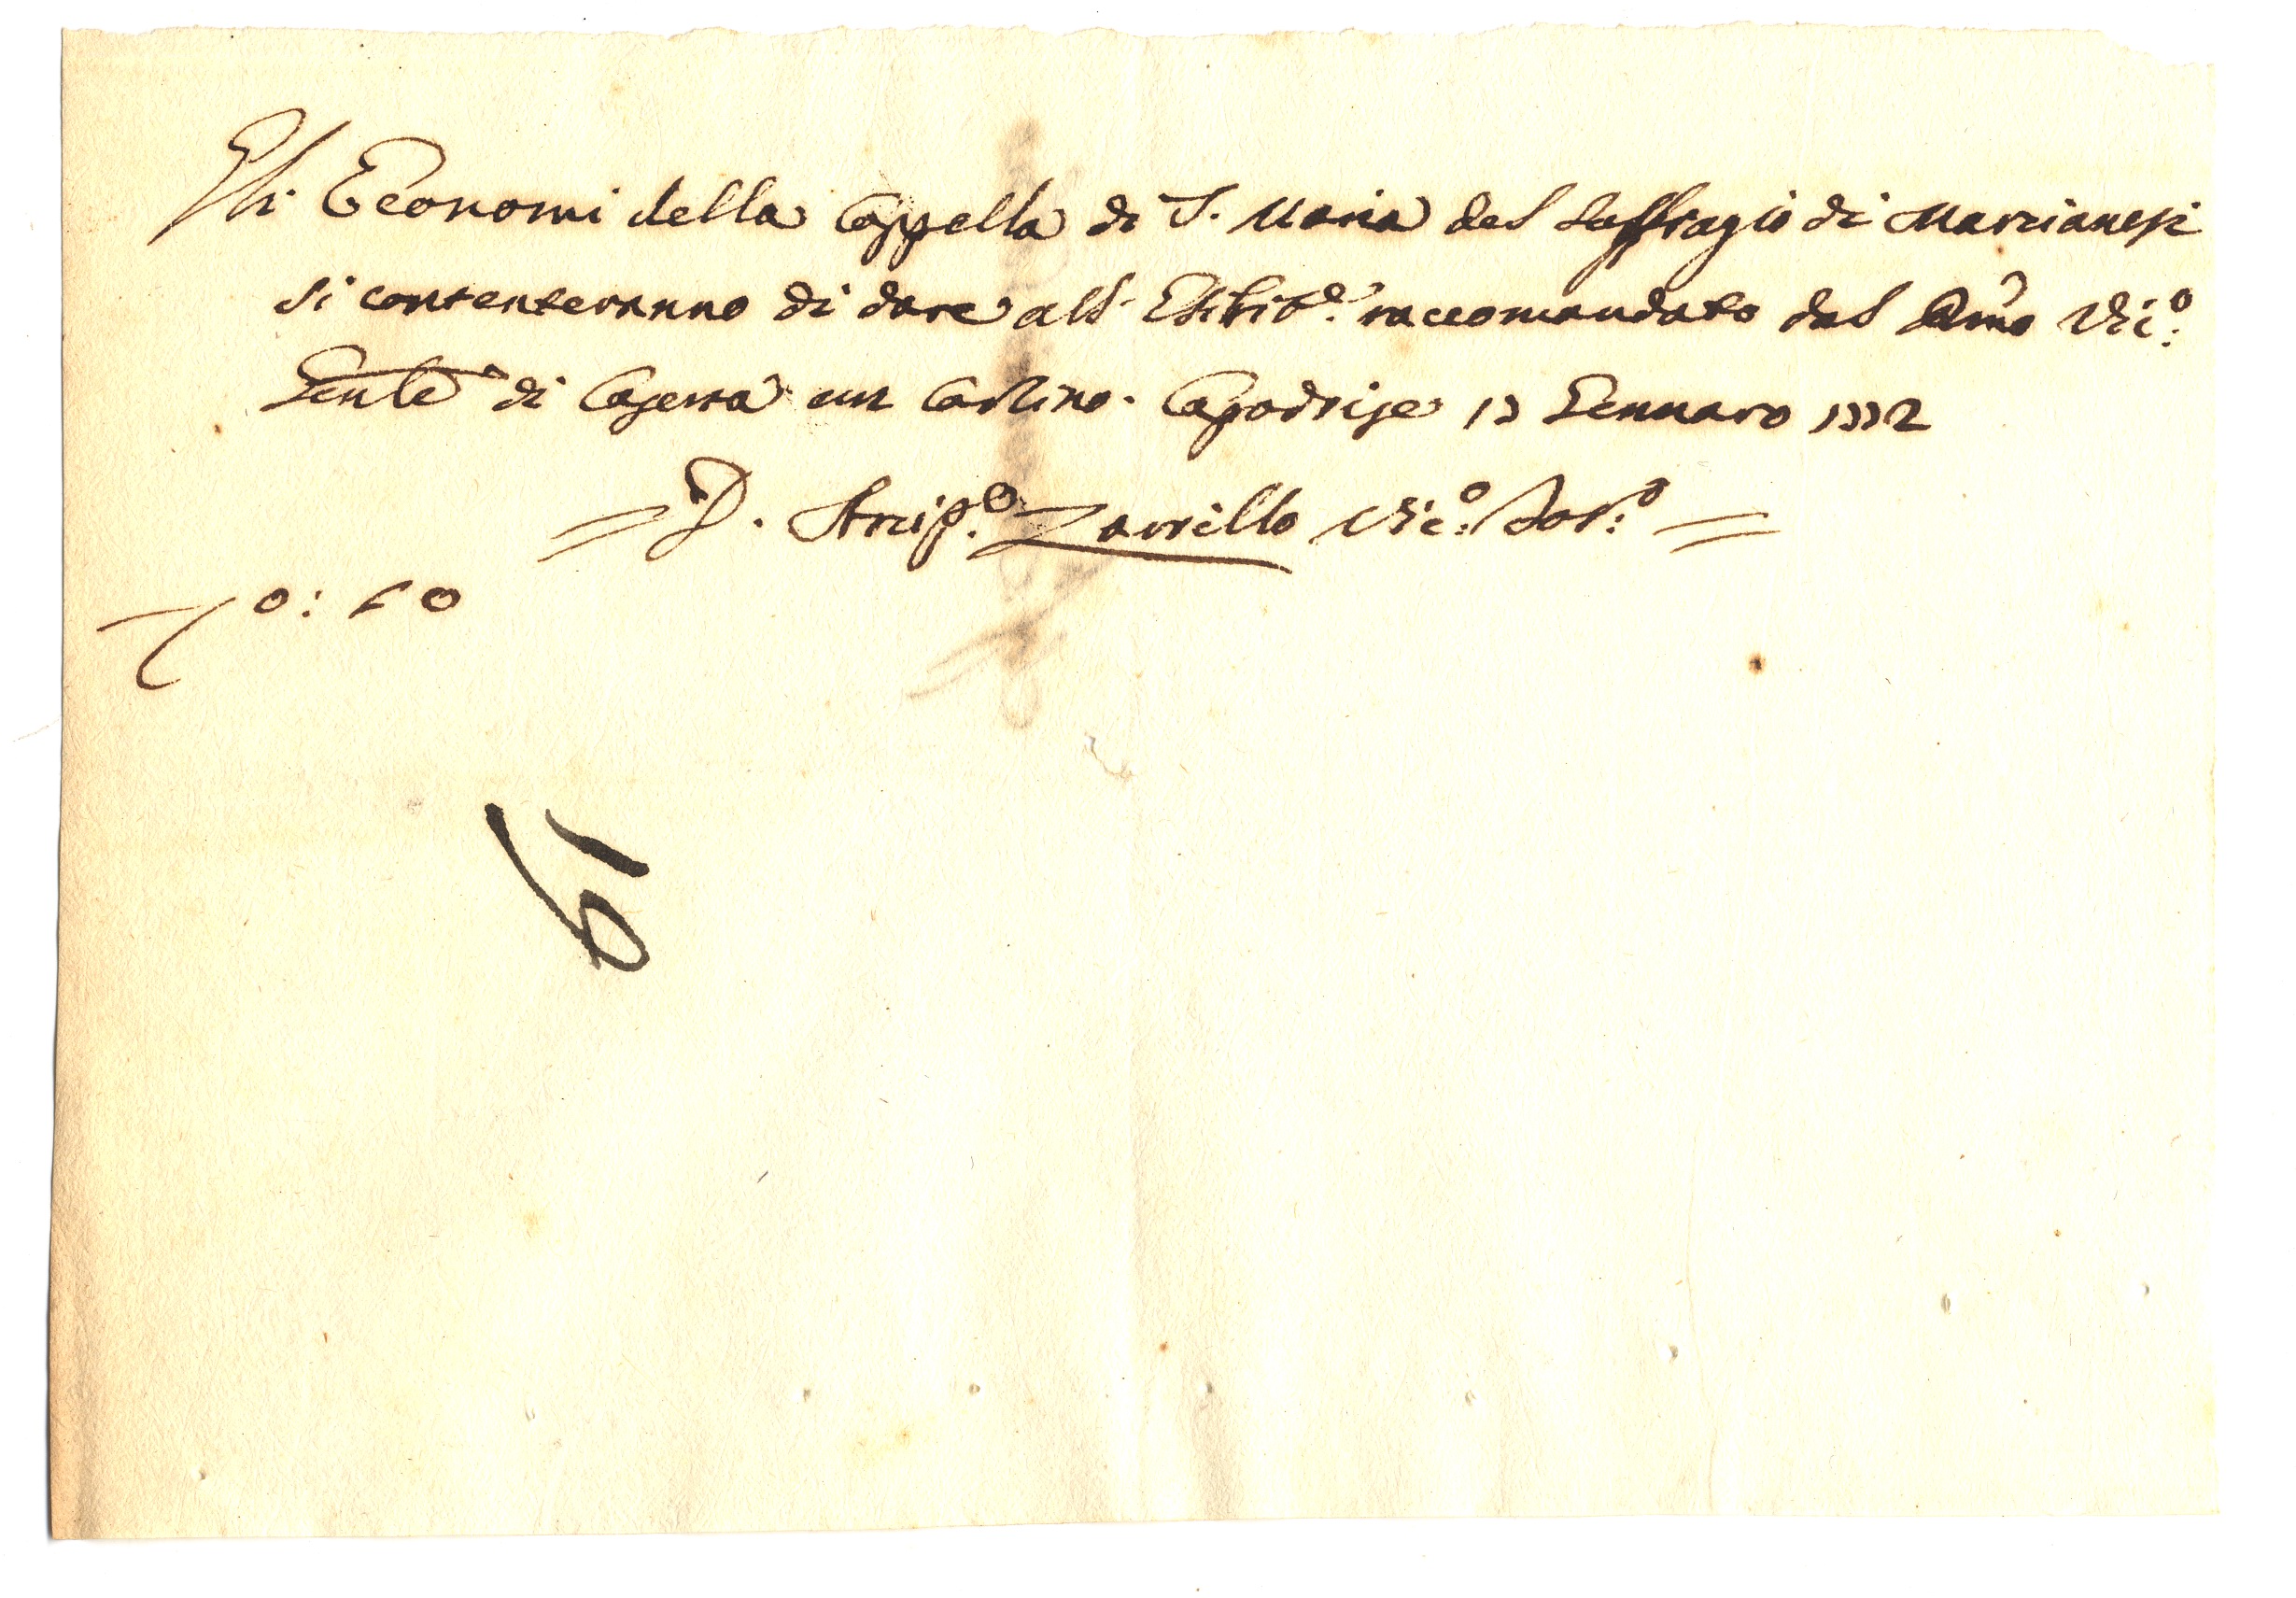 Gli Economi della Cappella di S. Maria del Suffragio di Marcianesi
si contenteranno di dare all' Esibit.e raccomandato dal Vic.o
Gen̅le di Caserta un Carlino. Capodrise 17 Gennaro 1772
= D. Arcip.e Zarrillo Vic.o For.o =
0: 10
19